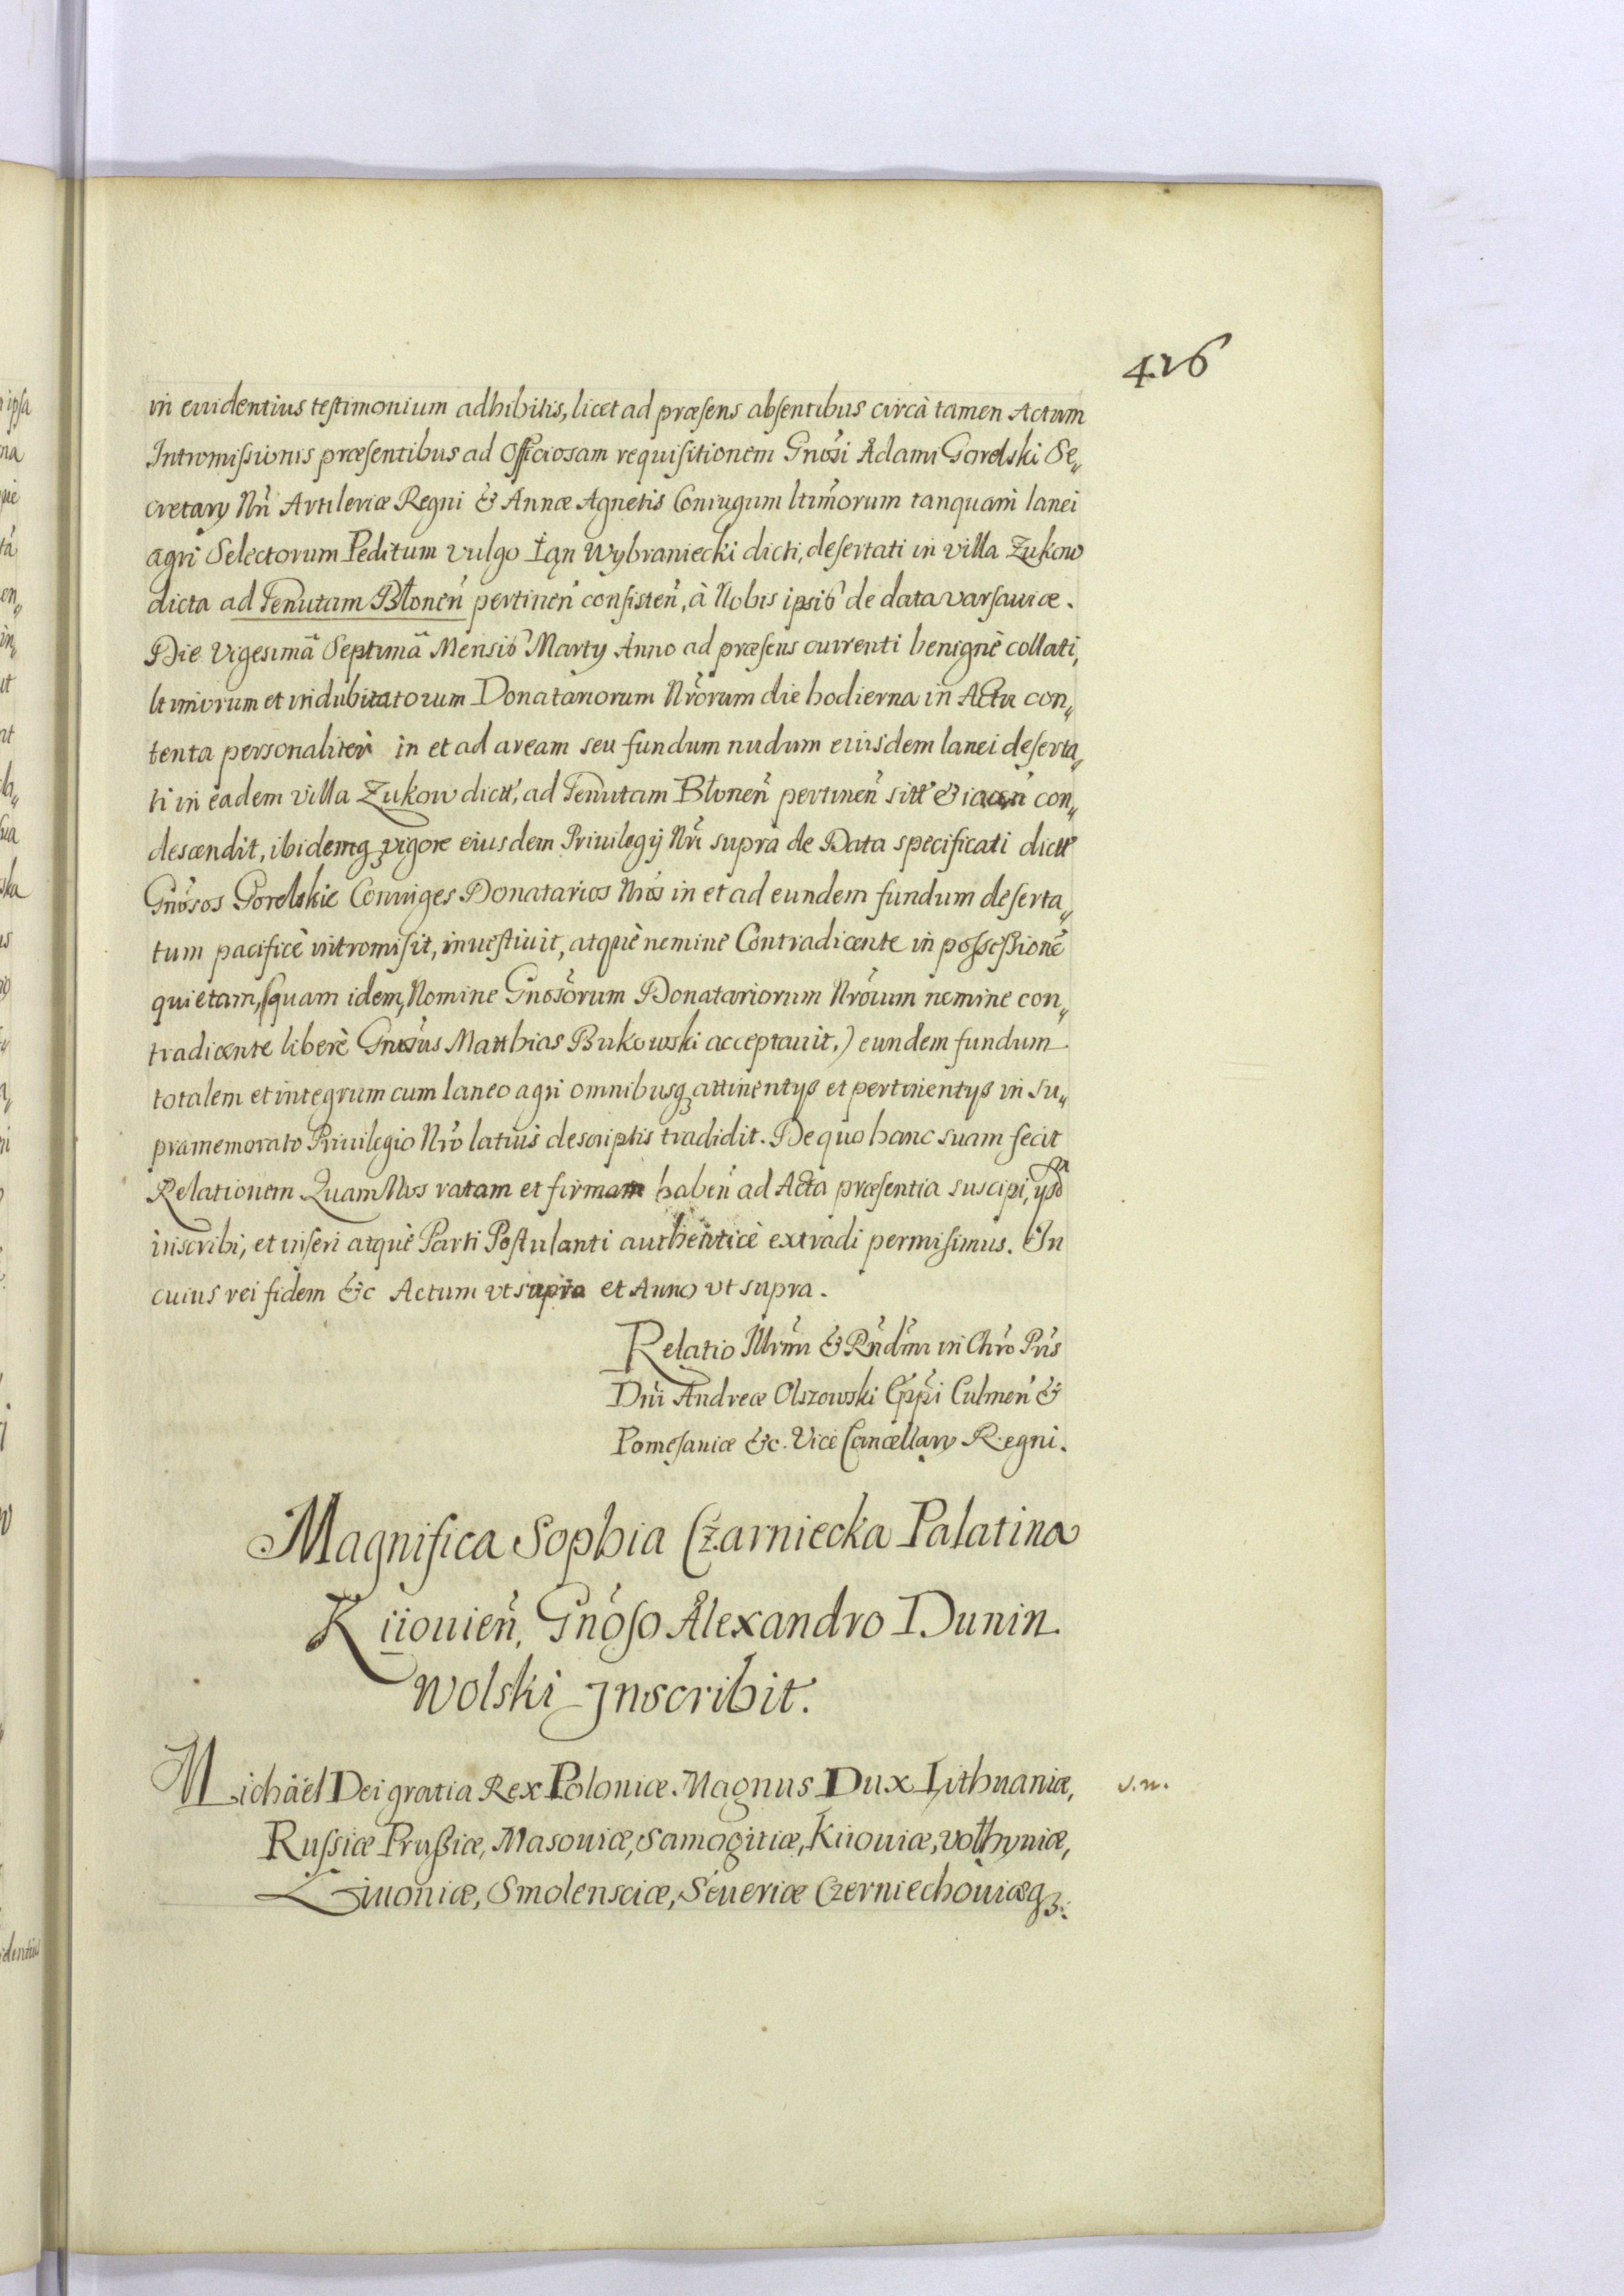 426
in euidentius testimonium adhibitis, licet ad præsens absentibus circà tamen Actum
Intromissionis præsentibus ad Officiosam requisitionem Gnosi Adami Gorelski Se„
cretary Nrı Artileriæ Regni & Annæ Agnetis Coniugum ltimorum tanquam lanei
agri Selectorum Peditum vulgo Łąn Wybraniecki dicti, desertati in villa Zukow
dicta ad Tenutam Błonen pertinen consisten, à Nobis ipsis de data varsauiæ.
Die Vigesimâ Septimâ Mensis Marty Anno ad præsens currenti benignè collati,
ltimorum et indubitatorum Donatariorum Nrorum die hodierna in Actu con„
tenta personaliter in et ad aream seu fundum nudum eiusdem lanei deserta„
ti in eadem villa Zukow dictt, ad Tenutam Błonen pertinen sitt & iacen con„
descendit, ibidemq3 vigore eiusdem Priuilegij Nri supra de Data specificati dictt
Gnosos Gorelskie Coniuges Donatarios Nros in et ad eundem fundum deserta„
tum pacificè intromisit, inuestiuit, atquè nemine Contradicente in possessionē
quietam, (quam idem, Nomine Gnosorum Donatariorum Nrorum nemine con„
tradicente liberè Gnosus Matthias Bukowski acceptauit,) eundem fundum
totalem et integrum cum laneo agri omnibusq3 attinentys et pertinentys in su„
pramemorato Priuilegio Nro latius descriptis tradidit. De quo hanc suam fecit
Relationem Quam Nos ratam et firmam haben ad Acta præsentia suscipi, ysq
inscribi, et inseri atquè Parti Postulanti authenticè extradi permisimus. In
cuius rei fidem &c Actum vt supra et Anno vt supra.
Relatio Illrmi & Rndmi in Chro Pris
Dni Andreæ Olszowski Eppi Culmen &
Pomesaniæ &c. Vice Cancellary Regni.
Magnifica Sophia Czarniecka Palatina
Kiiouien, Gnoso Alexandro Dunin
Wolski Inscribit.
Michäel Dei gratia Rex Poloniæ. Magnus Dux Lithuaniæ,
v. n.
Russiæ Prussiæ, Masouiæ, Samogitiæ, Kiiouiæ, Volhyniæ,
Liuoniæ, Smolensciæ, Seueriæ Czerniechouiæq3.